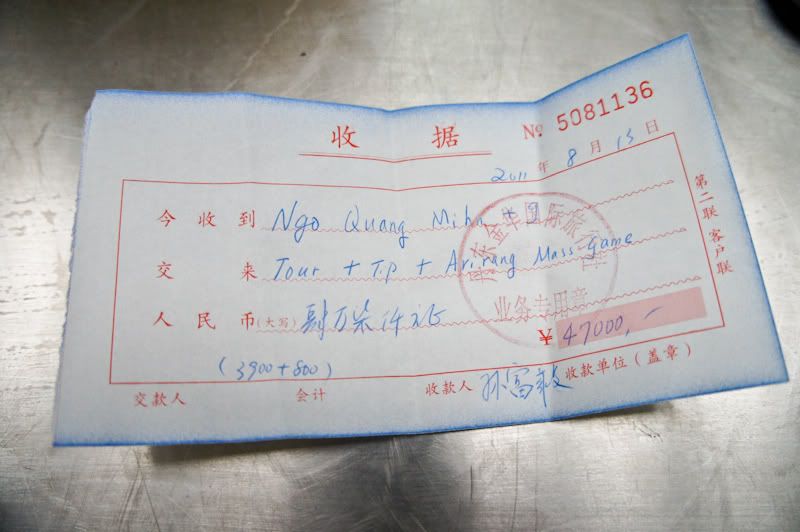 收 据
№ 5081136
2011 年 8 月 13 日
今 收 到 Ngo Quang Mihn + 9
交 来 Tour + T.P + Arirang Mass-game
人 民 币 (大写) 肆万柒仟元
¥ 47000,-
(3900+800)
交款人 会计 收款人 收款单位(盖章)
第二联 客户联
金华国际旅
业务专用章